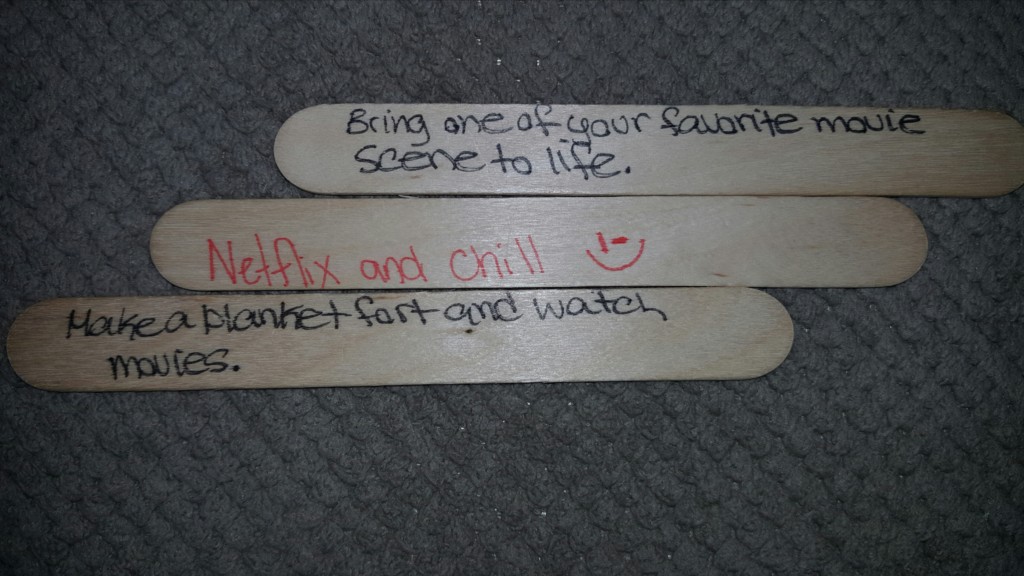 Bring one of your favorite movie
scene to life.
Netflix and chill
Make a blanket fort and watch
movies.